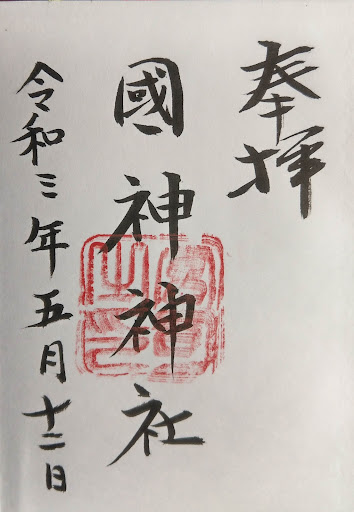 奉拝
國神神社
令和三年五月十二日